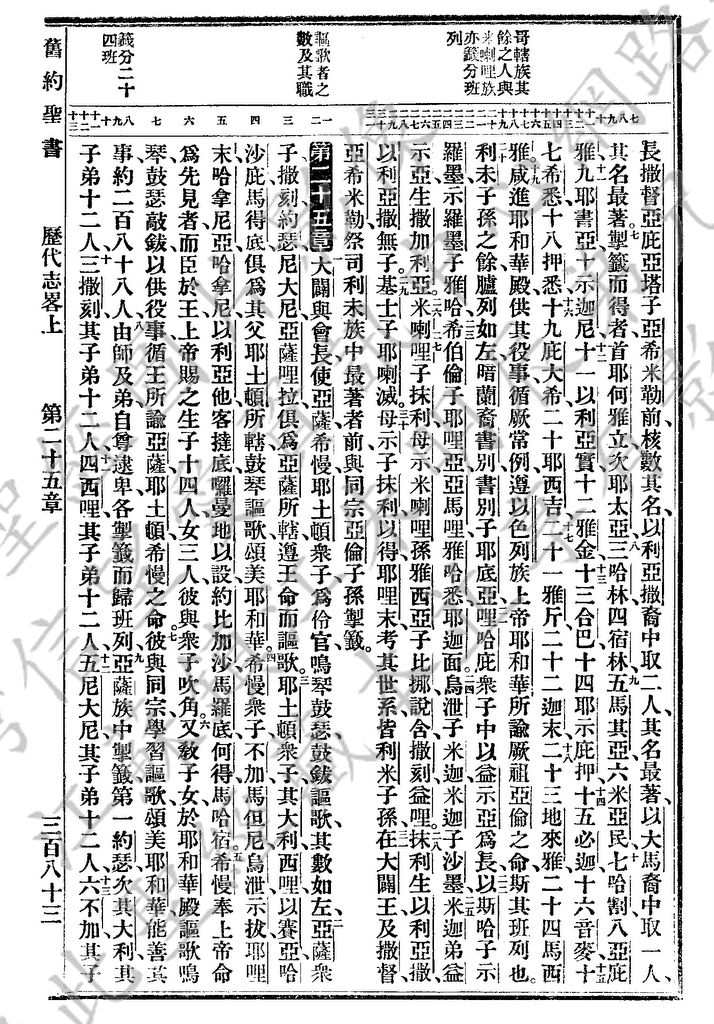 舊約聖書 歷代志畧上 第二十五章 三百八十三
哥轄族其
餘之人與
米喇哩族
亦籤分班
列
謳歌者之
數及其職
籤分二十
四班
長撒督亞庇亞塔子亞希米勒前核數其名以利亞撒裔中取二人其名最著以大馬裔中取一人
其名最著掣籤而得者首耶何雅立次耶太亞三哈林四宿林五馬其亞六米亞民七哈割八亞庇
雅九耶書亞十示迦尼十一以利亞實十二雅金十三合巴十四耶示庇押十五必迦十六音麥十
七希悉十八押悉十九庇大希二十耶西吉二十一雅斤二十二迦末二十三地來雅二十四馬西
雅咸進耶和華殿供其役事循厥常例遵以色列族上帝耶和華所諭厥祖亞倫之命斯其班列也
利未子孫之餘臚列如左暗蘭裔書別書別子耶底亞哩哈庇衆子中以益示亞爲長以斯哈子示
羅墨示羅墨子雅哈希伯倫子耶哩亞亞馬哩雅哈悉耶迦面烏泄子米迦米迦子沙墨米迦弟益
示亞益示亞生撒加利亞米喇哩子抹利母示米喇哩孫雅西亞子比挪說含撒刻益哩抹利生以利亞撒
以利亞撒無子基士子耶喇滅母示子抹利以得耶哩末考其世系皆利未子孫在大闢王及撒督
亞希米勒祭司利未族中最著者前與同宗亞倫子孫掣籤
第二十五章大闢與會長使亞薩希慢耶土頓衆子爲伶官鳴琴鼓瑟鼓鈸謳歌其數如左亞薩衆
子撒刻約瑟尼大尼亞薩哩拉俱爲亞薩所轄遵王命而謳歌耶土頓衆子其大利西哩以賽亞哈
沙庇馬得底俱爲其父耶土頓所轄鼓琴謳歌頌美耶和華希慢衆子不加馬但尼烏泄示拔耶哩
末哈拿尼亞哈拿尼以利亞他客撻底囉曼地以設約比加沙馬羅底何得馬哈宿希慢奉上帝命
爲先見者而臣於王上帝賜之生子十四人女三人彼與衆子吹角又敎子女於耶和華殿謳歌鳴
琴鼓瑟敲鈸以供役事循王所諭亞薩耶土頓希慢之命彼與同宗學習謳歌頌美耶和華能善其
事約二百八十八人由師及弟自尊逮卑各掣籤而歸班列亞薩族中掣籤第一約瑟次其大利其
子弟十二人三撒刻其子弟十二人四西哩其子弟十二人五尼大尼其子弟十二人六不加其子